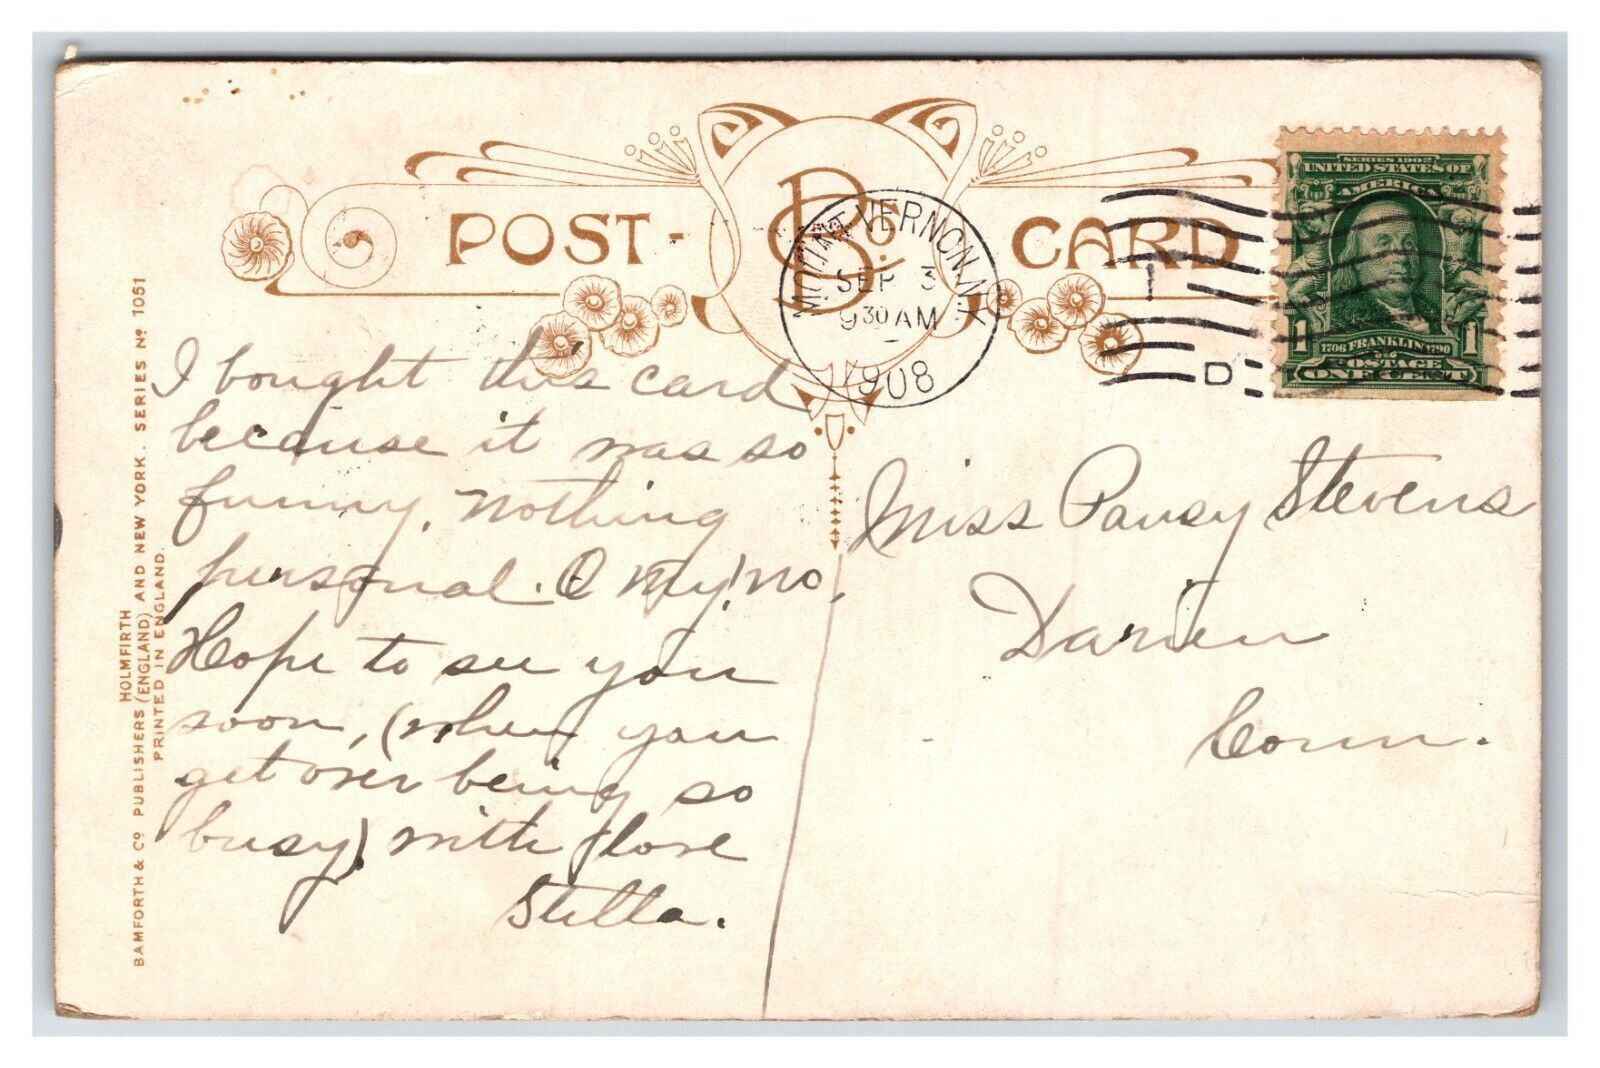 POST-CARD
B & Co.
MOUNT VERNON, N.Y.
SEP 3
9 30 AM
1908
1
D
SERIES 1902
UNITED STATES OF
AMERICA
1 1
1706 FRANKLIN 1790
POSTAGE
ONE CENT
I bought this card
because it was so
funny. Nothing
personal. O my! no.
Hope to see you
soon, (when you
get over being so
busy) with love
Stella.
Miss Pansy Stevens
Darien
Conn.
HOLMFIRTH
BAMFORTH & Co PUBLISHERS (ENGLAND) AND NEW YORK. SERIES No 1051
PRINTED IN ENGLAND.